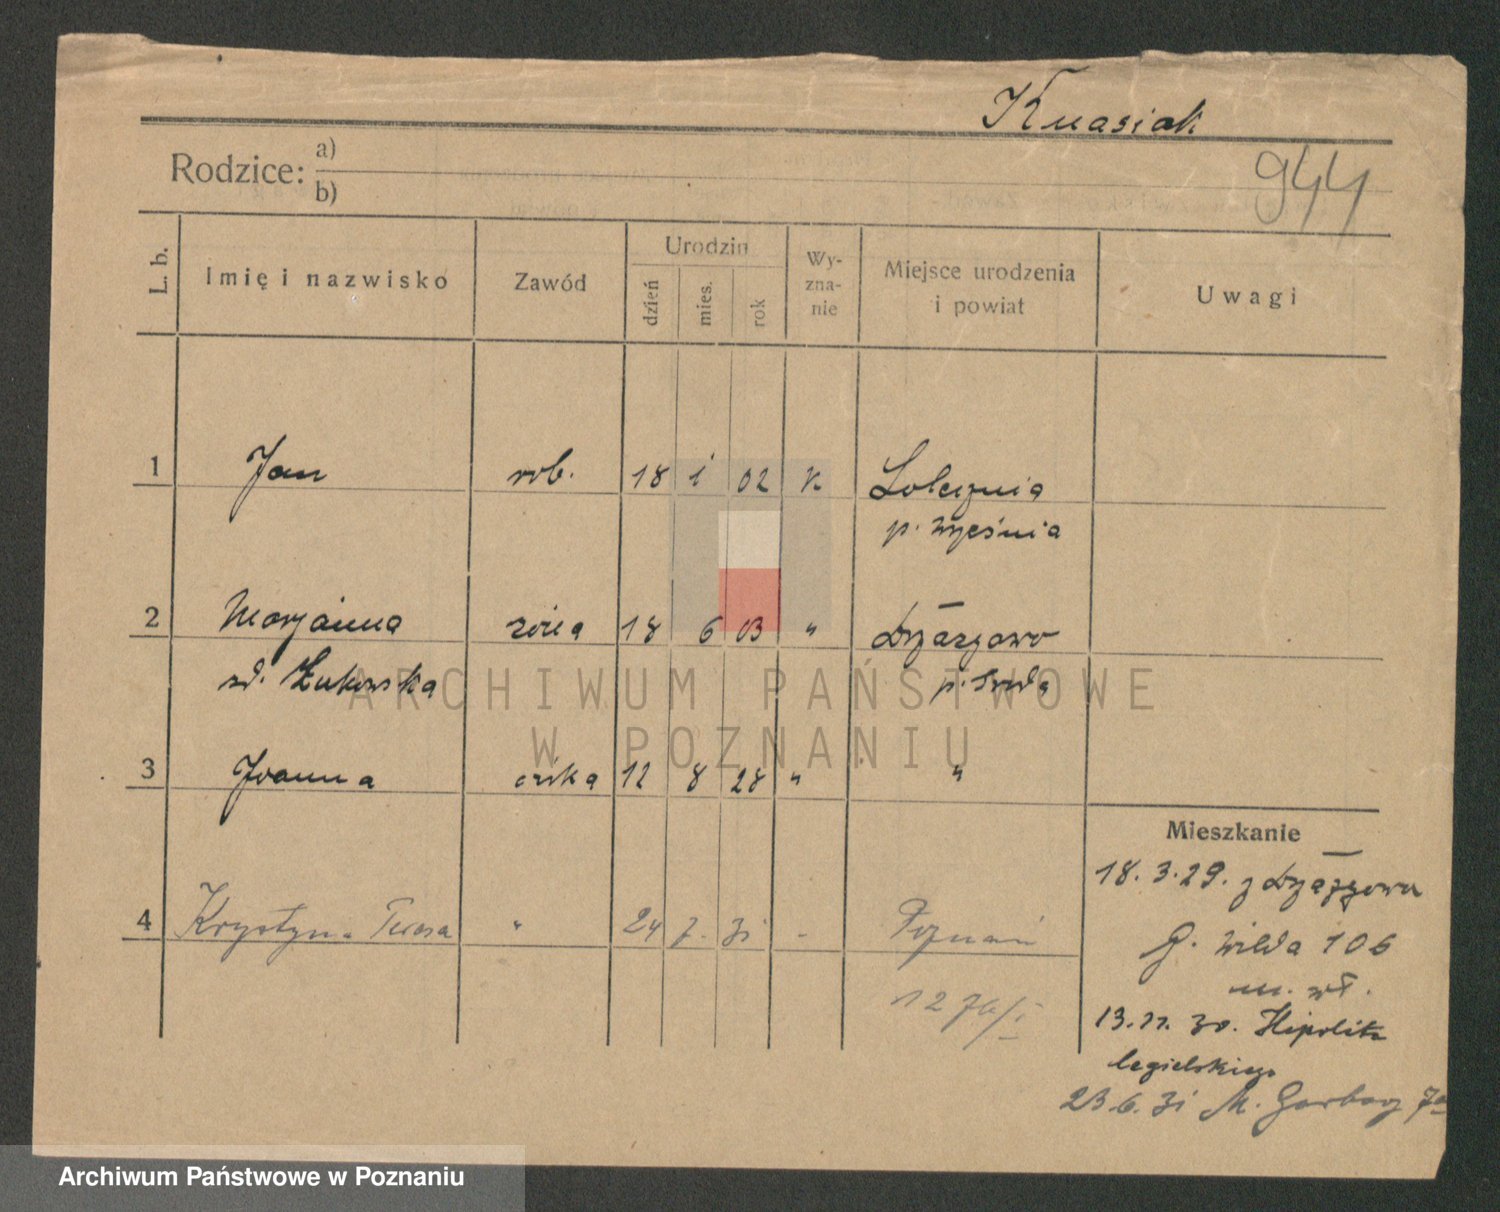 Kuasiak
944
Rodzice: a)
b)
L. b. Imię i nazwisko Zawód Urodzin dzień mies. rok Wy-zna-nie Miejsce urodzenia i powiat Uwagi
1 Jan rob. 18 1 02 K
p. Września
2 Marjanna żona 18 6 03 "
zd. Żukowska p. Środa
ARCHIWUM PAŃSTWOWE
W POZNANIU
3 Joanna córka 12 8 28 " "
Mieszkanie
18.3.29. z
4 Krystyna Teresa " 24 7. 31 - Poznań
G. Wilda 106
m. wł.
13.11.30. Hipolita
Cegielskiego
23.6.31 M. Garbary
Archiwum Państwowe w Poznaniu